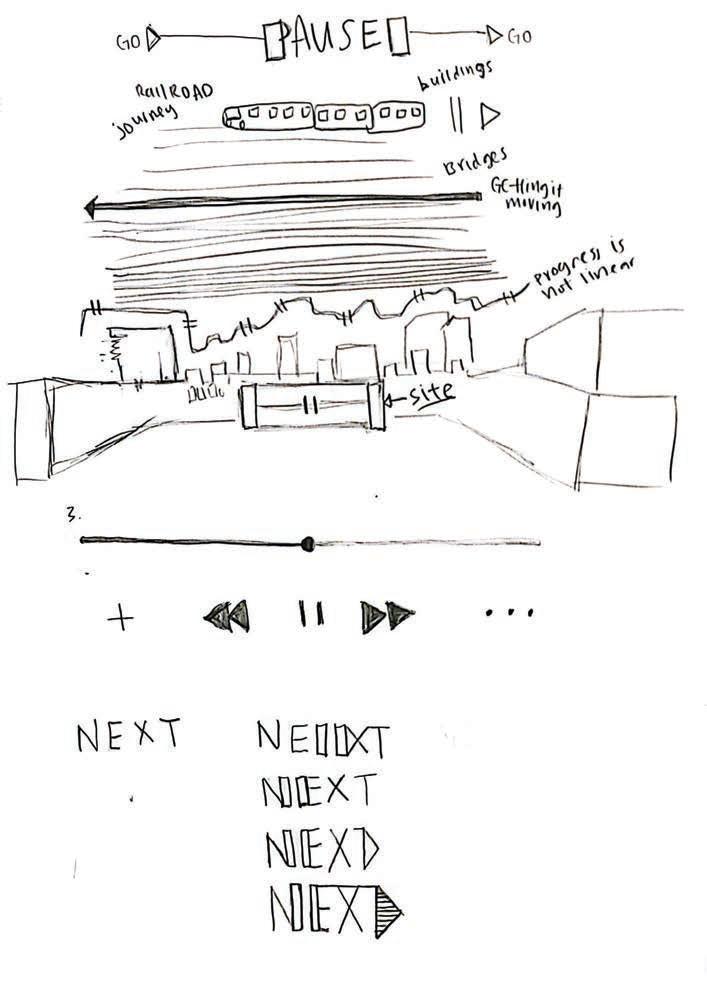 GO PAUSE GO
RaiLROAD
journey
buildings
Bridges
GE-tting it
moving
progress is
not linear
site
3.
+ ...
NEXT
NEXT
NEXT
NEXT
NEX